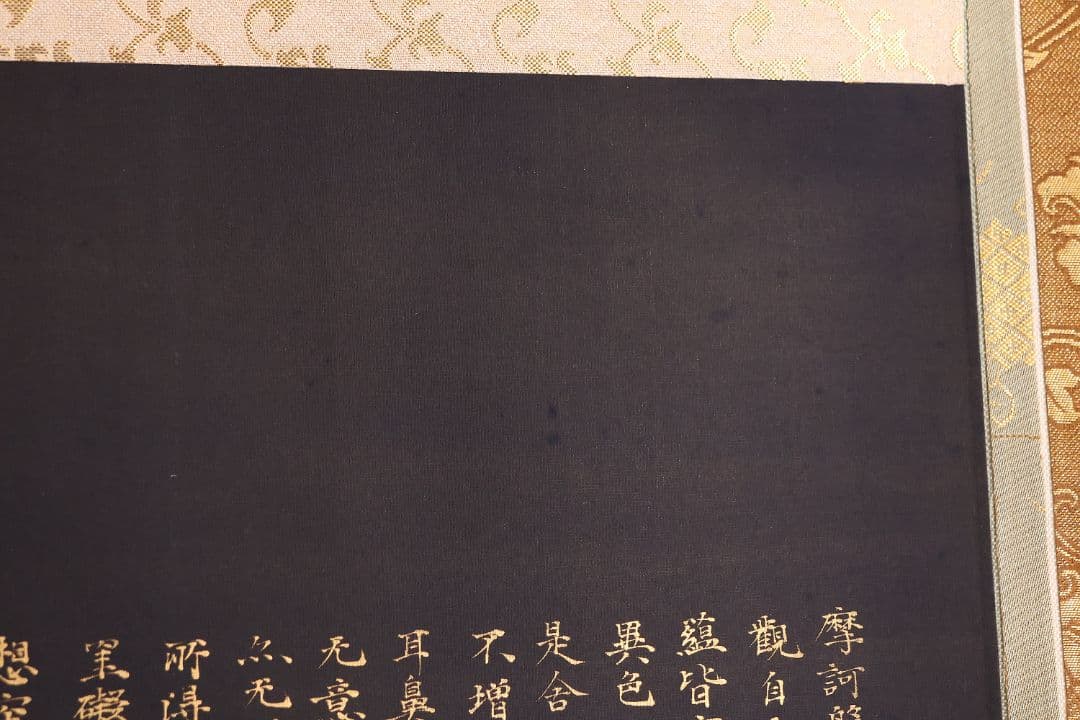 摩訶般
觀自
蘊皆
異色
是舍
不增
耳鼻
无意
尒无
所得
罣礙
想究